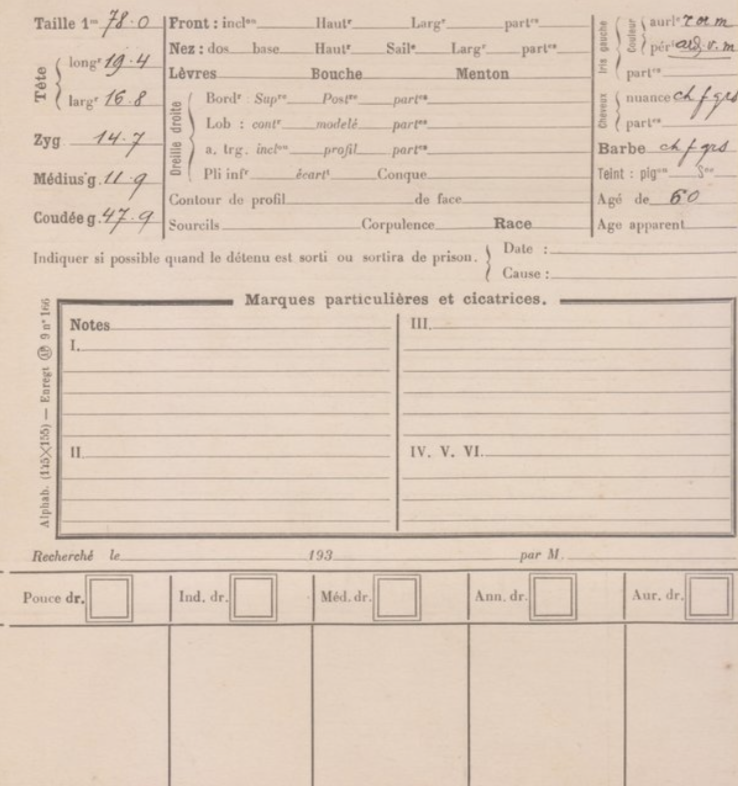 Taille 1m 78.0
Tête
longr 19.4
largr 16.8
Zyg. 14.7
Médius g. 11.9
Coudée g. 47.9
Front : inclon Hautr Largr partes
Nez : dos base Hautr Saile Largr partes
Lèvres Bouche Menton
Oreille droite
Bordr : Supre Postre partes
Lob : contr modelé partes
a. trg. inclon profil partes
Pli infr écartt Conque
Contour de profil de face
Sourcils Corpulence Race
Iris gauche
Couleur
aurle r or m
périe ard. v. m
partes
Cheveux
nuance ch f grs
partes
Barbe ch f grs
Teint : pigon Son
Agé de 60
Age apparent
Indiquer si possible quand le détenu est sorti ou sortira de prison.
Date :
Cause :
Marques particulières et cicatrices.
Notes
I.
II
III.
IV. V. VI.
Alphab. (115×155) — Enregt 9 nº 166
Recherché le 193 par M.
Pouce dr. Ind. dr. Méd. dr. Ann. dr. Aur. dr.